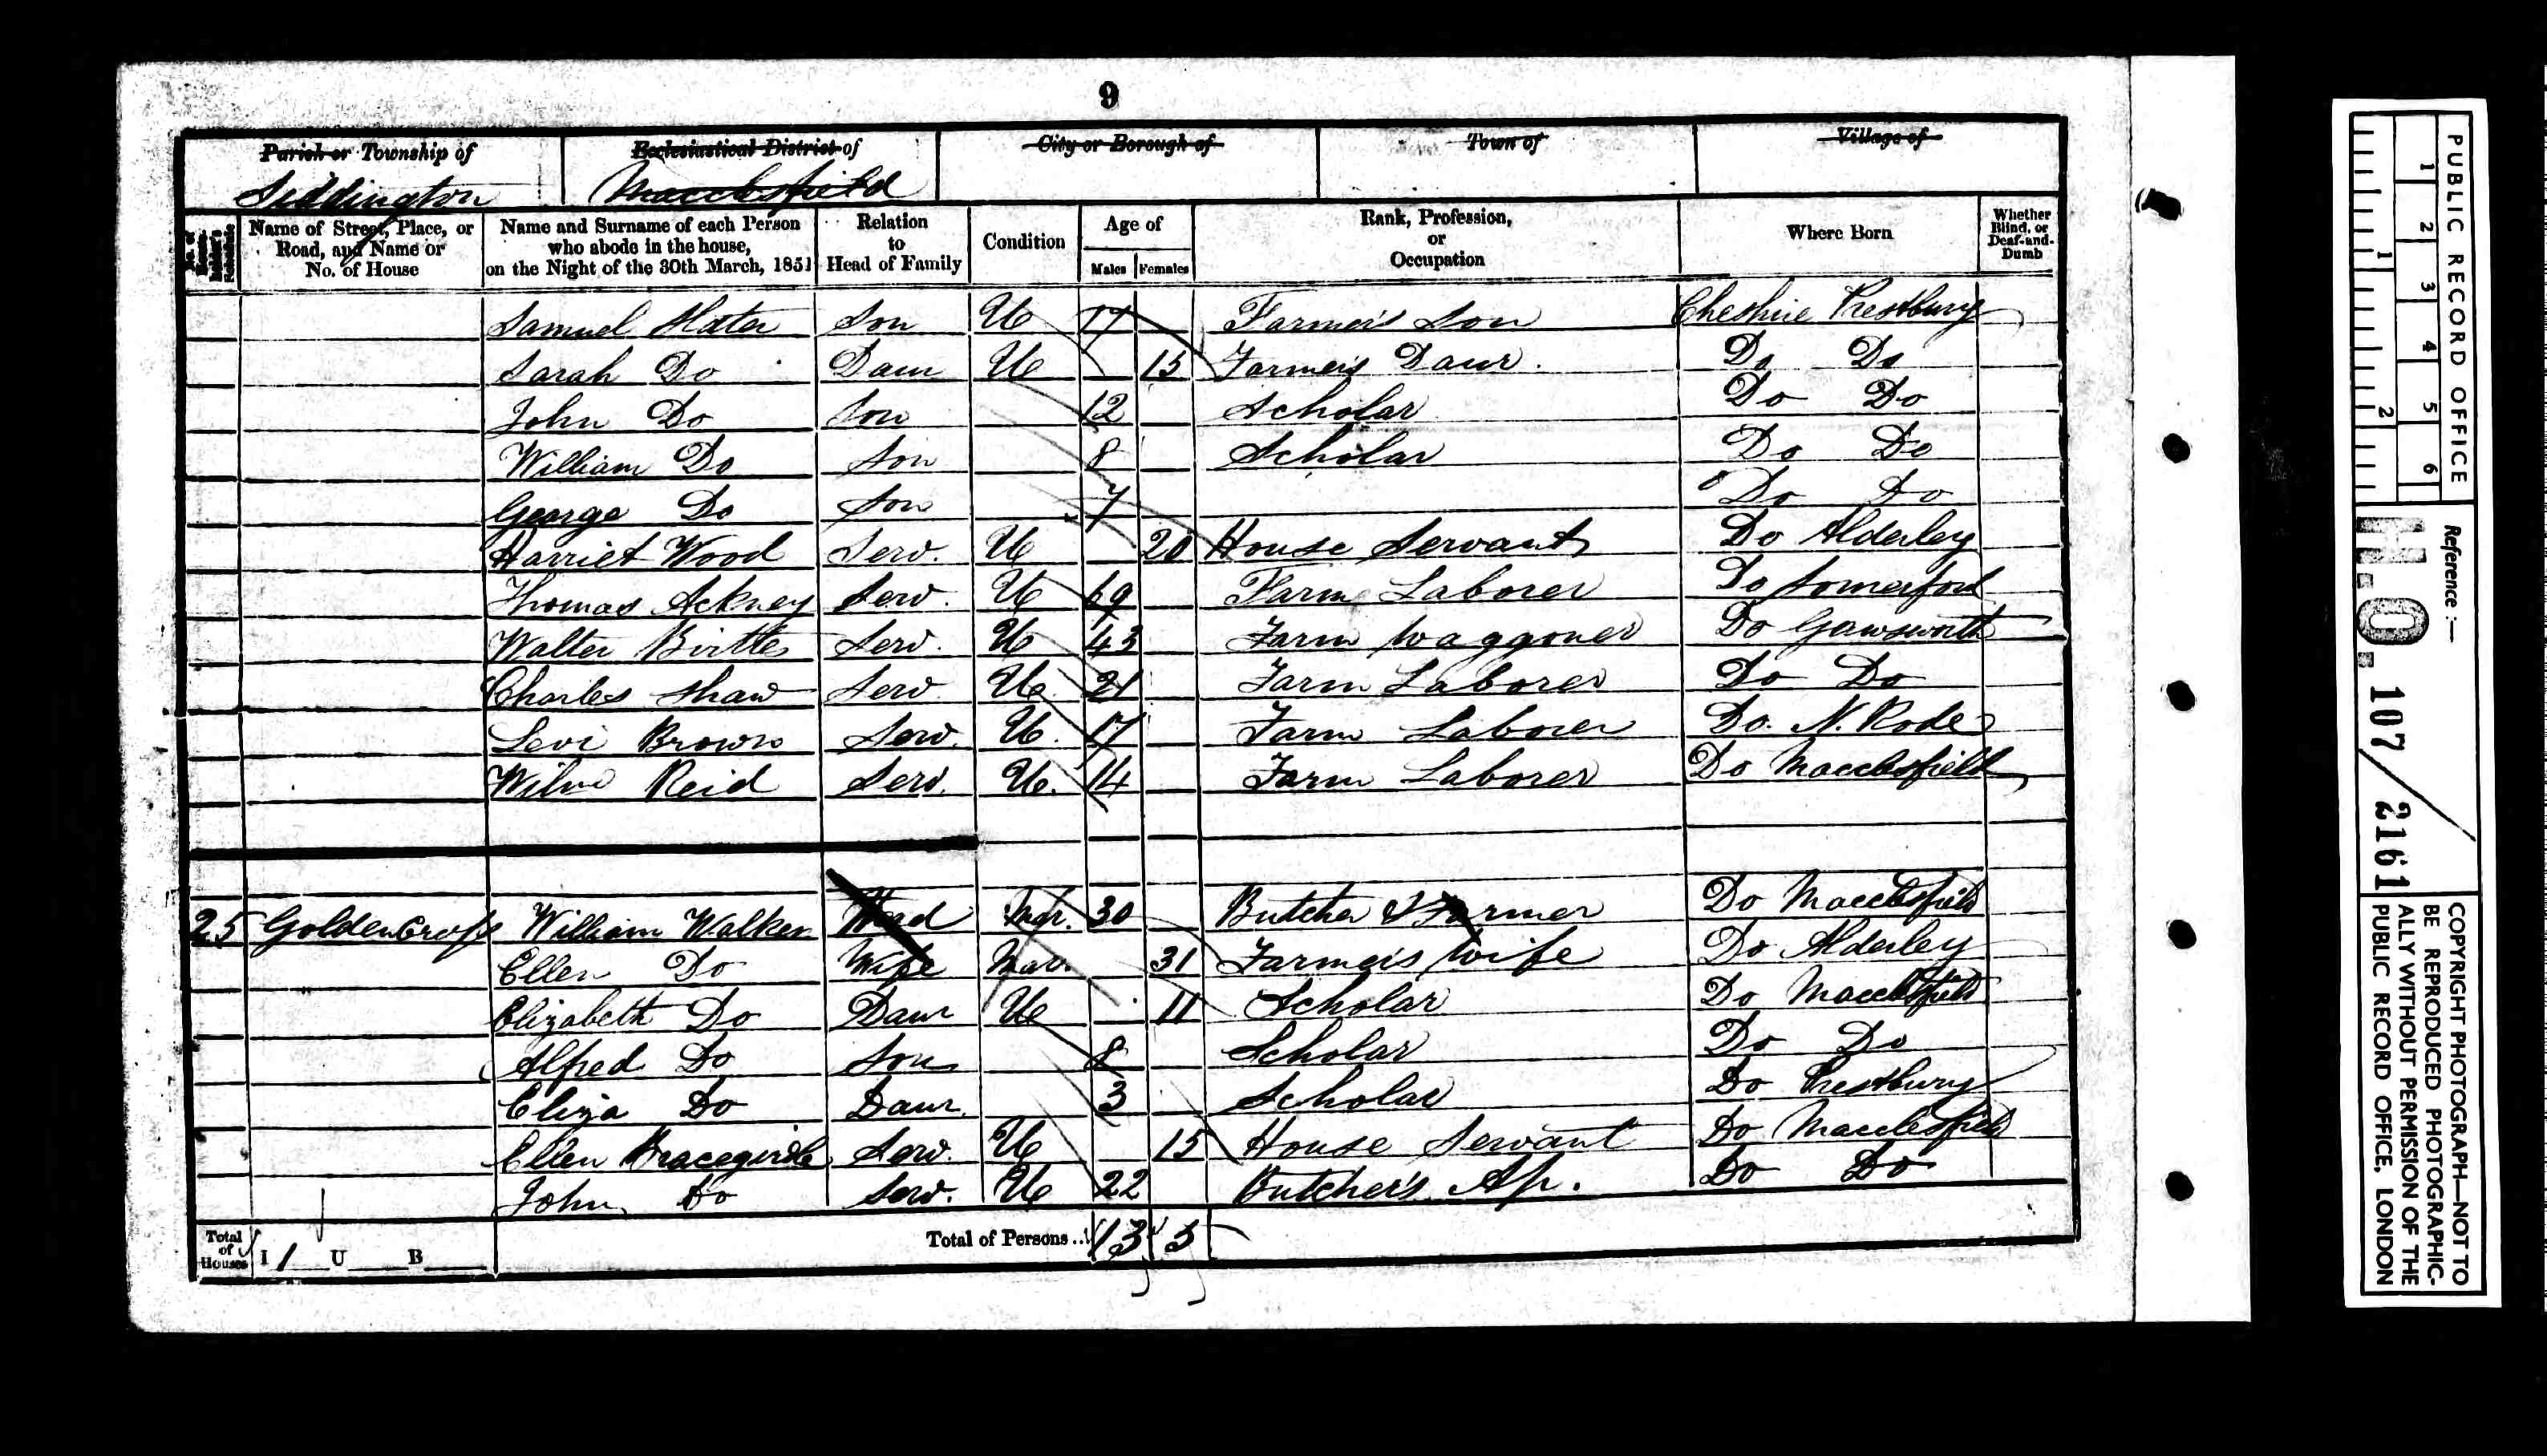 9
Parish or Township of
Siddington
Ecclesiastical District of
Macclesfield
City or Borough of
Town of
Village of
No. of House-holder's Schedule
Name of Street, Place, or Road, and Name or No. of House
Name and Surname of each Person who abode in the house, on the Night of the 30th March, 1851
Relation to Head of Family
Condition
Age of
Males Females
Rank, Profession, or Occupation
Where Born
Whether Blind, or Deaf-and-Dumb
Samuel Slater Son U 17 Farmer's Son Cheshire Prestbury
Sarah Do Daur U 15 Farmer's Daur. Do Do
John Do Son 12 Scholar Do Do
William Do Son 8 Scholar Do Do
George Do Son 7 Do Do
Harriet Wood Serv. U 20 House Servant Do Alderley
Thomas Ackney Serv. U 69 Farm Laborer Do Somerford
Walter Birtles Serv. U 43 Farm Waggoner Do Gawsworth
Charles Shaw Serv U 21 Farm Laborer Do Do
Levi Brown Serv. U. 17 Farm Laborer Do. N. Rode
Reid Serv. U. 14 Farm Laborer Do Macclesfield
25 Golden Croft William Walker Head Mar. 30 Butcher & Farmer Do Macclesfield
Ellen Do Wife Mar. 31 Farmer's Wife Do Alderley
Elizabeth Do Daur U 11 Scholar Do Macclesfield
Alfred Do Son 8 Scholar Do Do
Eliza Do Daur. 3 Scholar Do Prestbury
Ellen Bracegirdle Serv. U 15 House Servant Do Macclesfield
John Do Serv. U 22 Butcher's Ap. Do Do
Total of Houses I 1 U B
Total of Persons .. 13 5
PUBLIC RECORD OFFICE
1 2 3 4 5 6
1 2
Reference :—
H.O. 107 / 2161
COPYRIGHT PHOTOGRAPH—NOT TO
BE REPRODUCED PHOTOGRAPHIC-
ALLY WITHOUT PERMISSION OF THE
PUBLIC RECORD OFFICE, LONDON